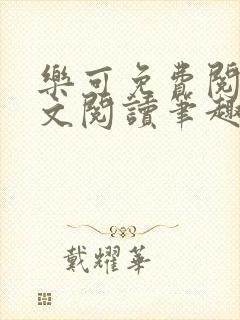 樂可免費閱
文閱讀筆趣
戴耀華